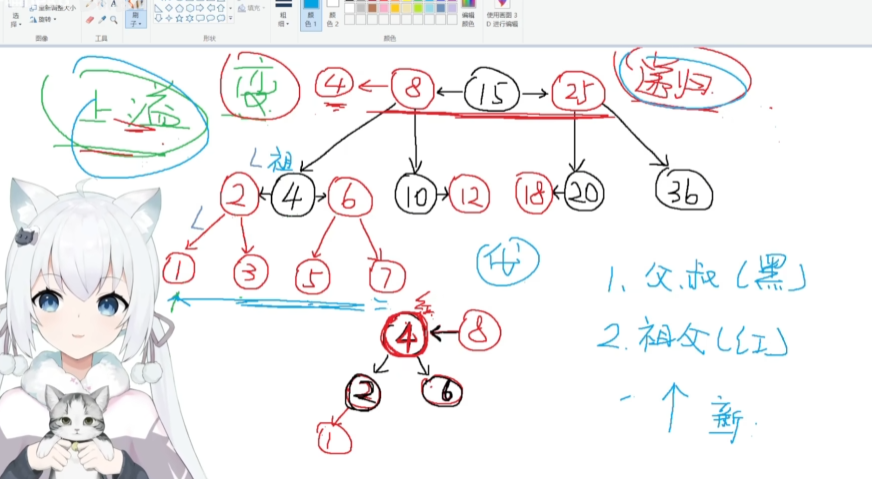 选择
重新调整大小
旋转
A
图像
工具
刷子
形状
填充
粗细
颜色 1
颜色 2
颜色
编辑颜色
使用画图 3D 进行编辑
上溢
4 8 15 25
递归
L 祖
2 4 6 10 12 18 20 36
L
1 3 5 7
代
1. 父.叔(黑)
= 红
4 8
2. 祖父(红)
2 6
新.
1